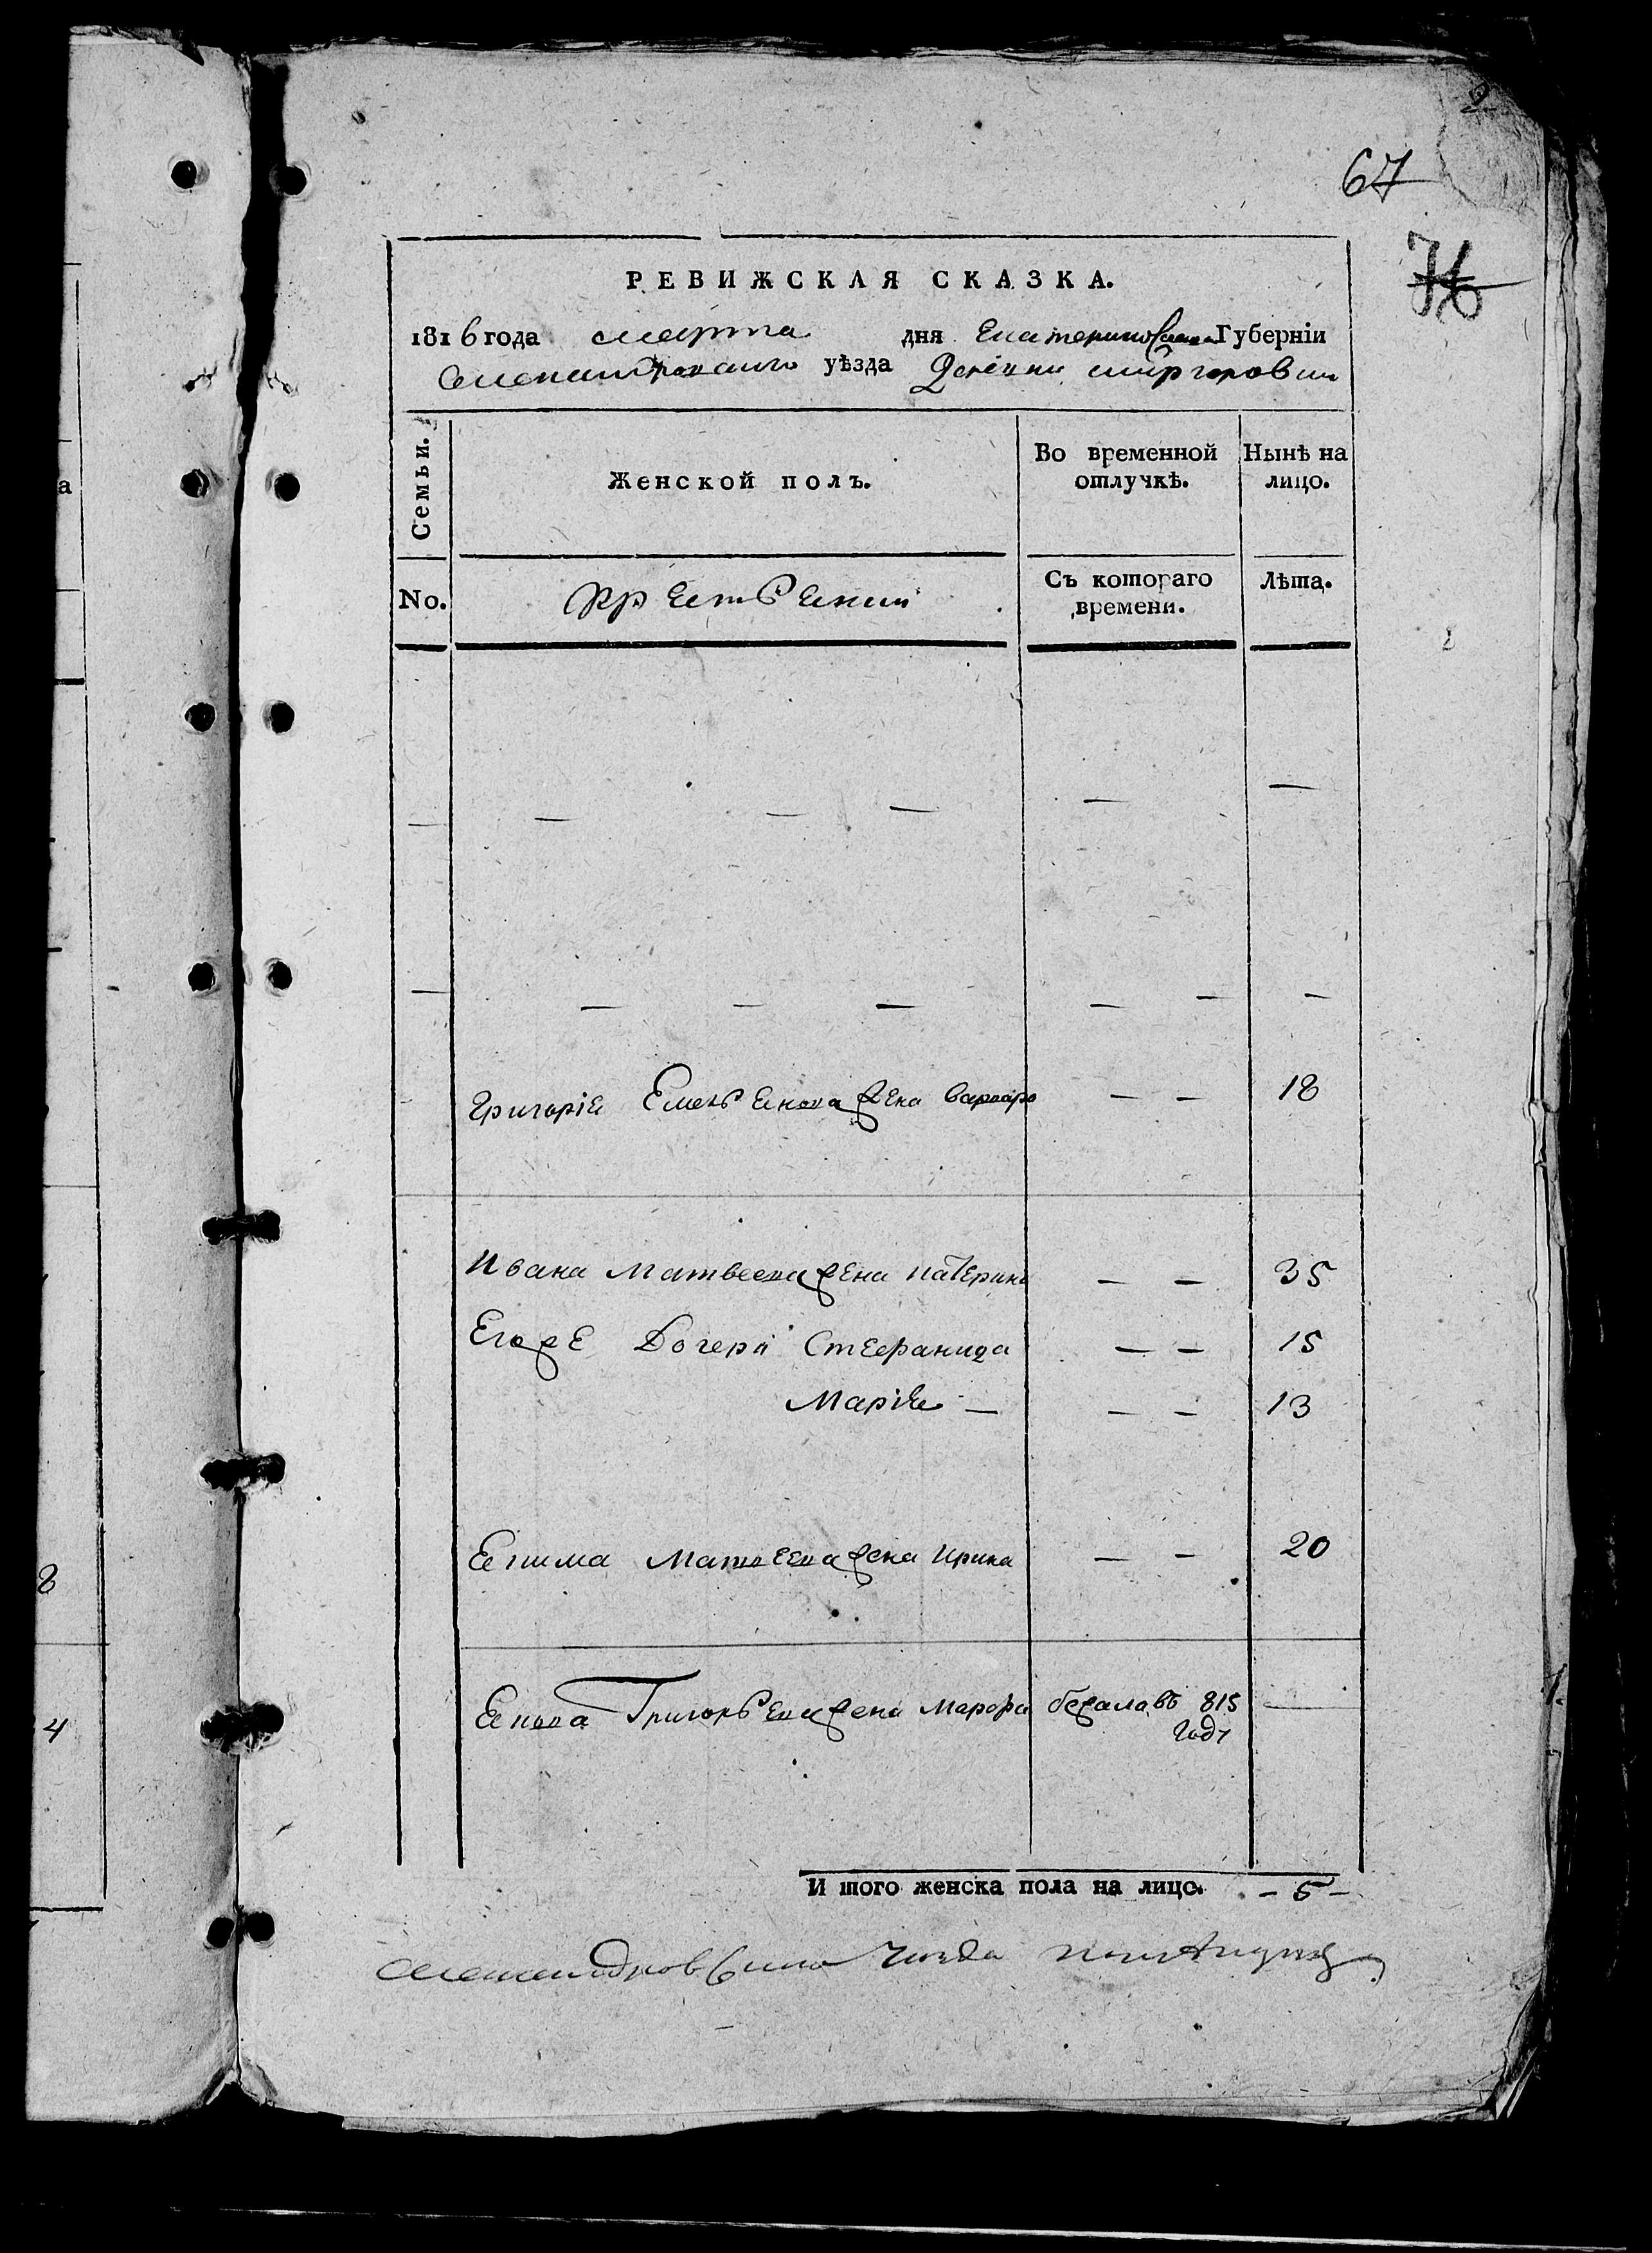 2
67
76
РЕВИЖСКАЯ СКАЗКА.
1816 года марта дня Екатеринославской Губерніи
Александровскаго уѣзда
Семьи. Женской полъ. Во временной отлучкѣ. Нынѣ на лицо.
No. Съ котораго времени. Лѣта.
— — — — — —
— — — — — — —
Григорія Емельенова жена варвара — — 18
Ивана Матвеева жена катерина — — 35
Егоже Дочери Стефанида — — 15
Марія — — — 13
Екима Матвеева жена Ирина — — 20
Григорьева жена Марфа бежала въ 815 —
году
И того женска пола на лицо. - 5 -
а
8
4